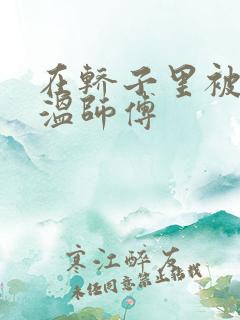 在轿子里被
温师傅
寒江醉友
未经同意禁止转载